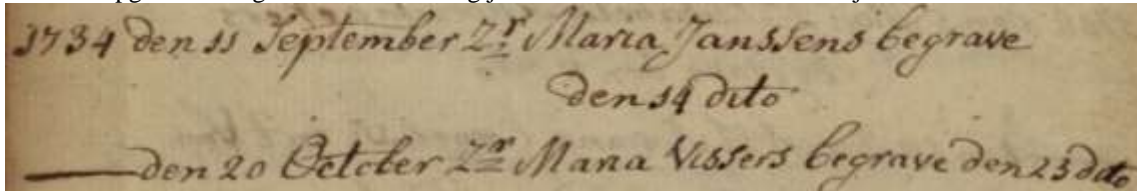 1734 den 11 September Zr Maria Janssens begrave
den 14 dito
den 20 October Zr Maria Vissers begrave den 23 dito